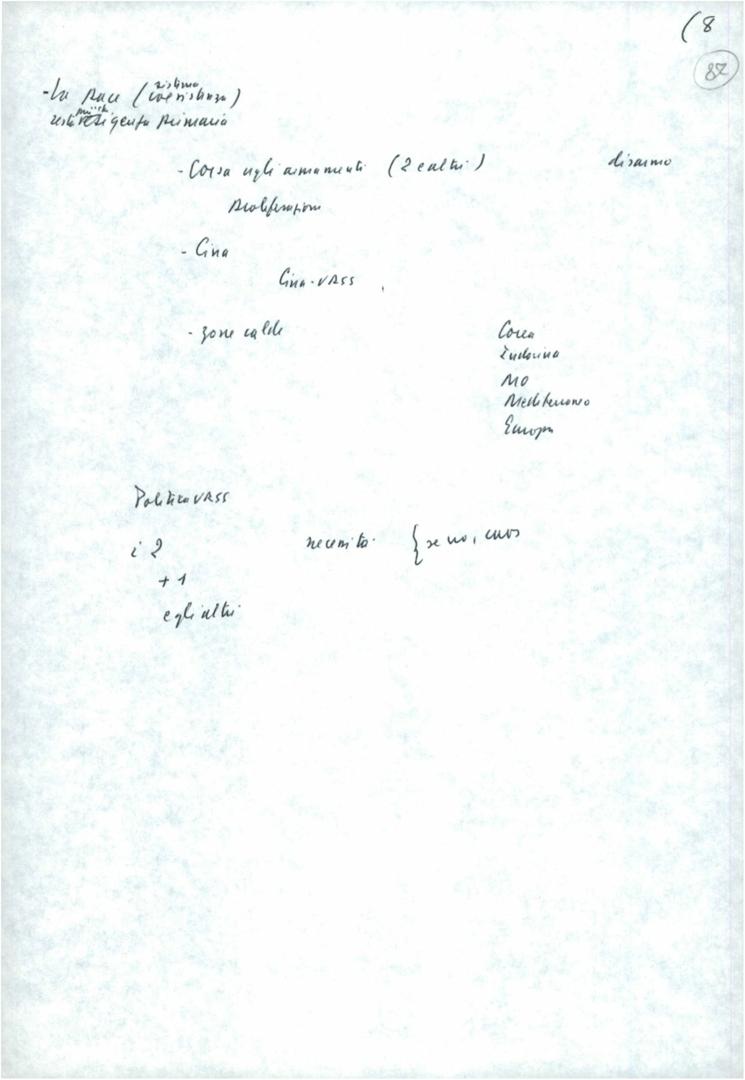 (8
87
sistema
- La pace (coesistenza)
resta esigenza primaria
- Corsa agli armamenti (2 e altri) disarmo
Proliferazione
- Cina
Cina-URSS
- zone calde Corea
Indocina
MO
Mediterraneo
Europa
Politica URSS
i 2 necessità { se no, caos
+ 1
e gli altri